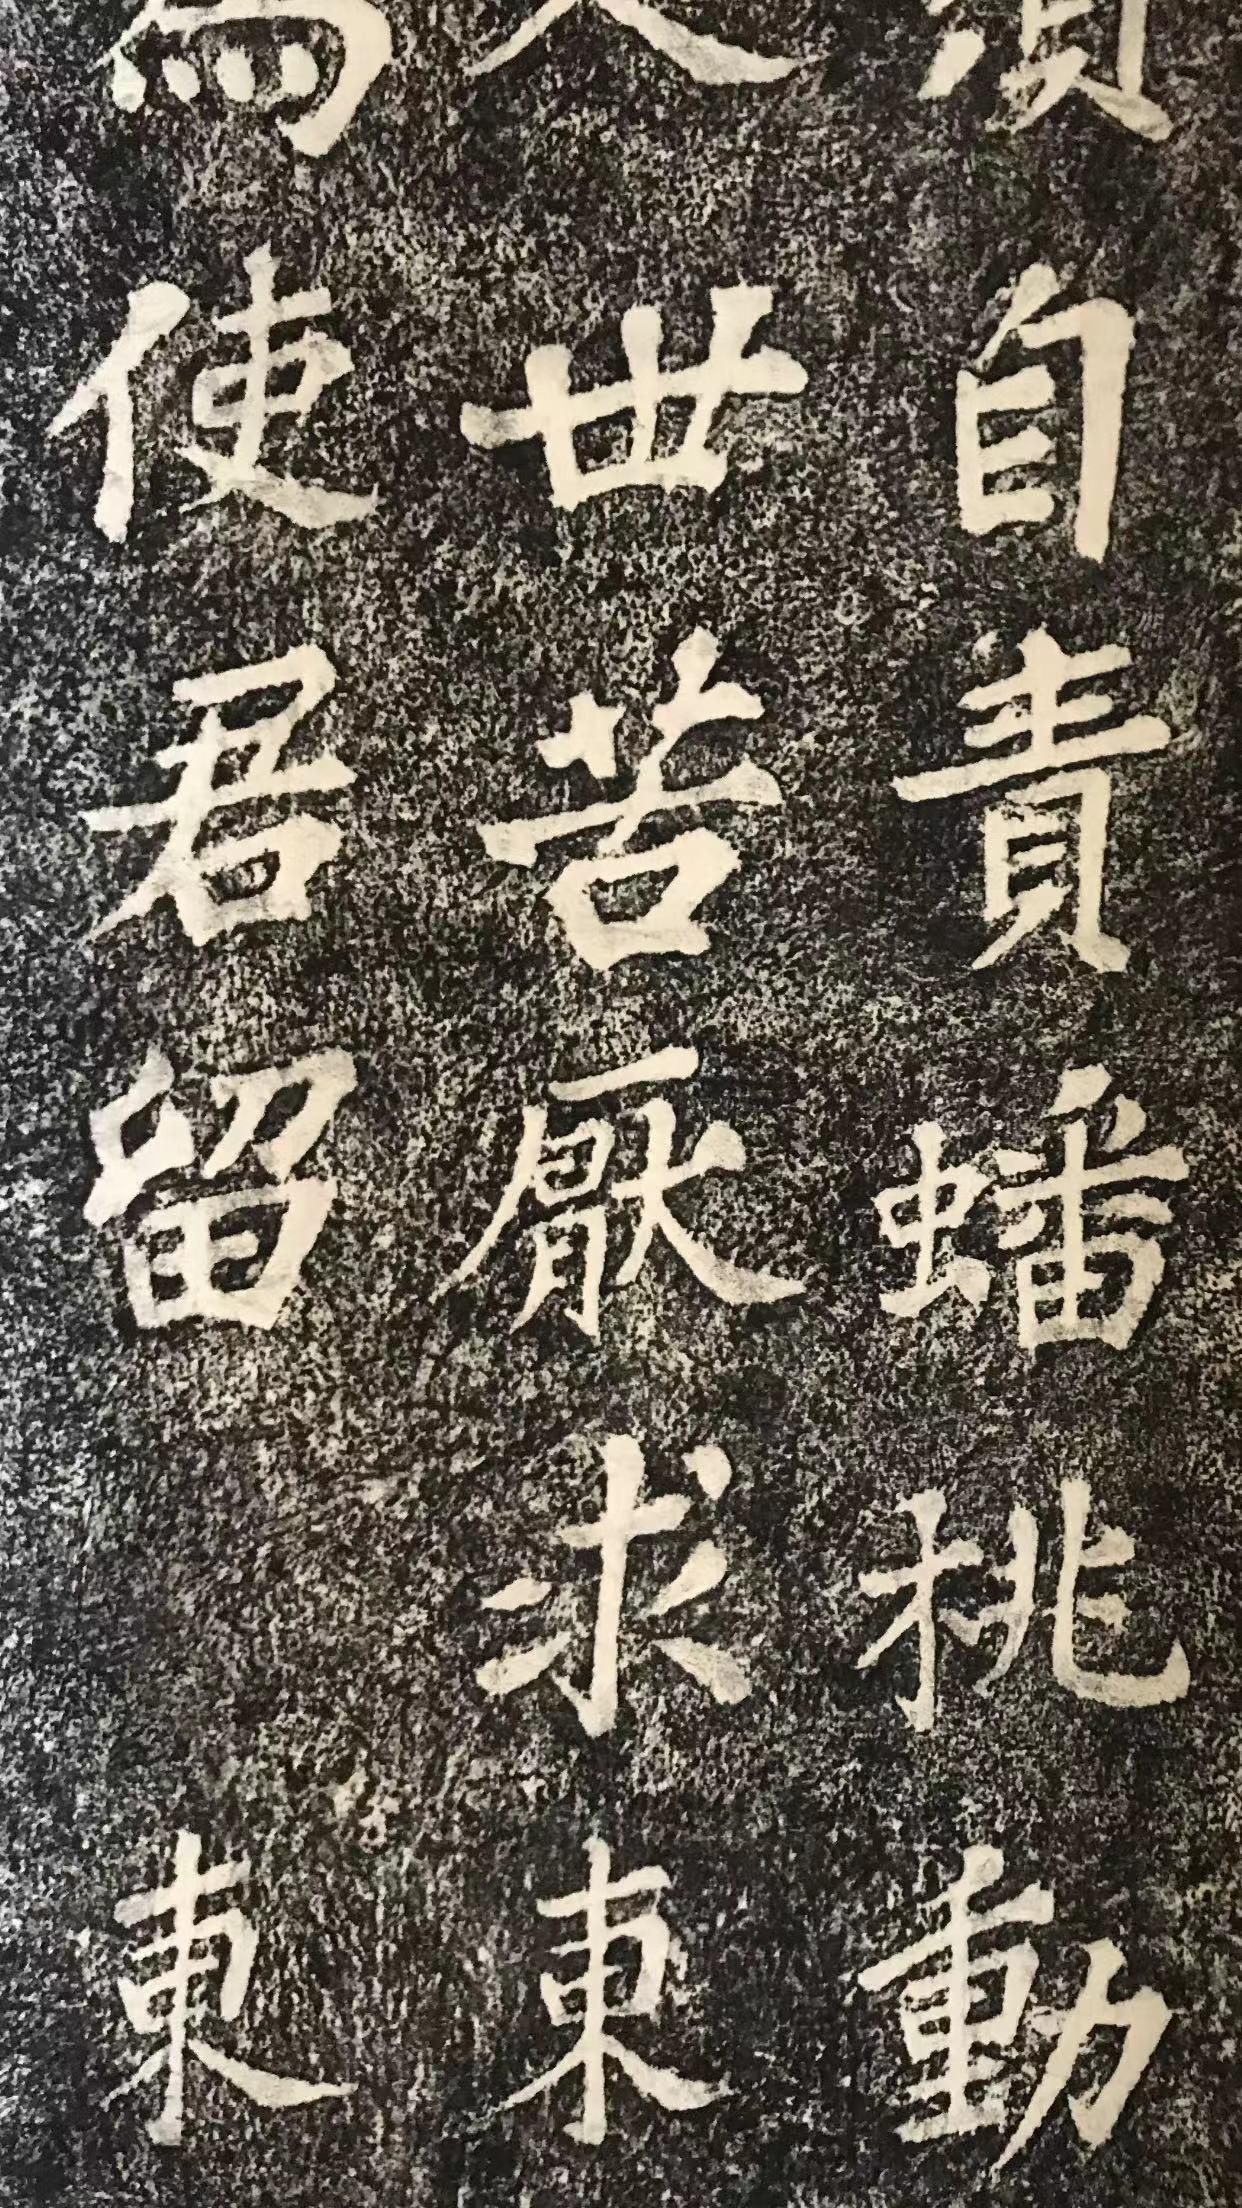 自責蟠桃動
世苦厭求東
為使君留東